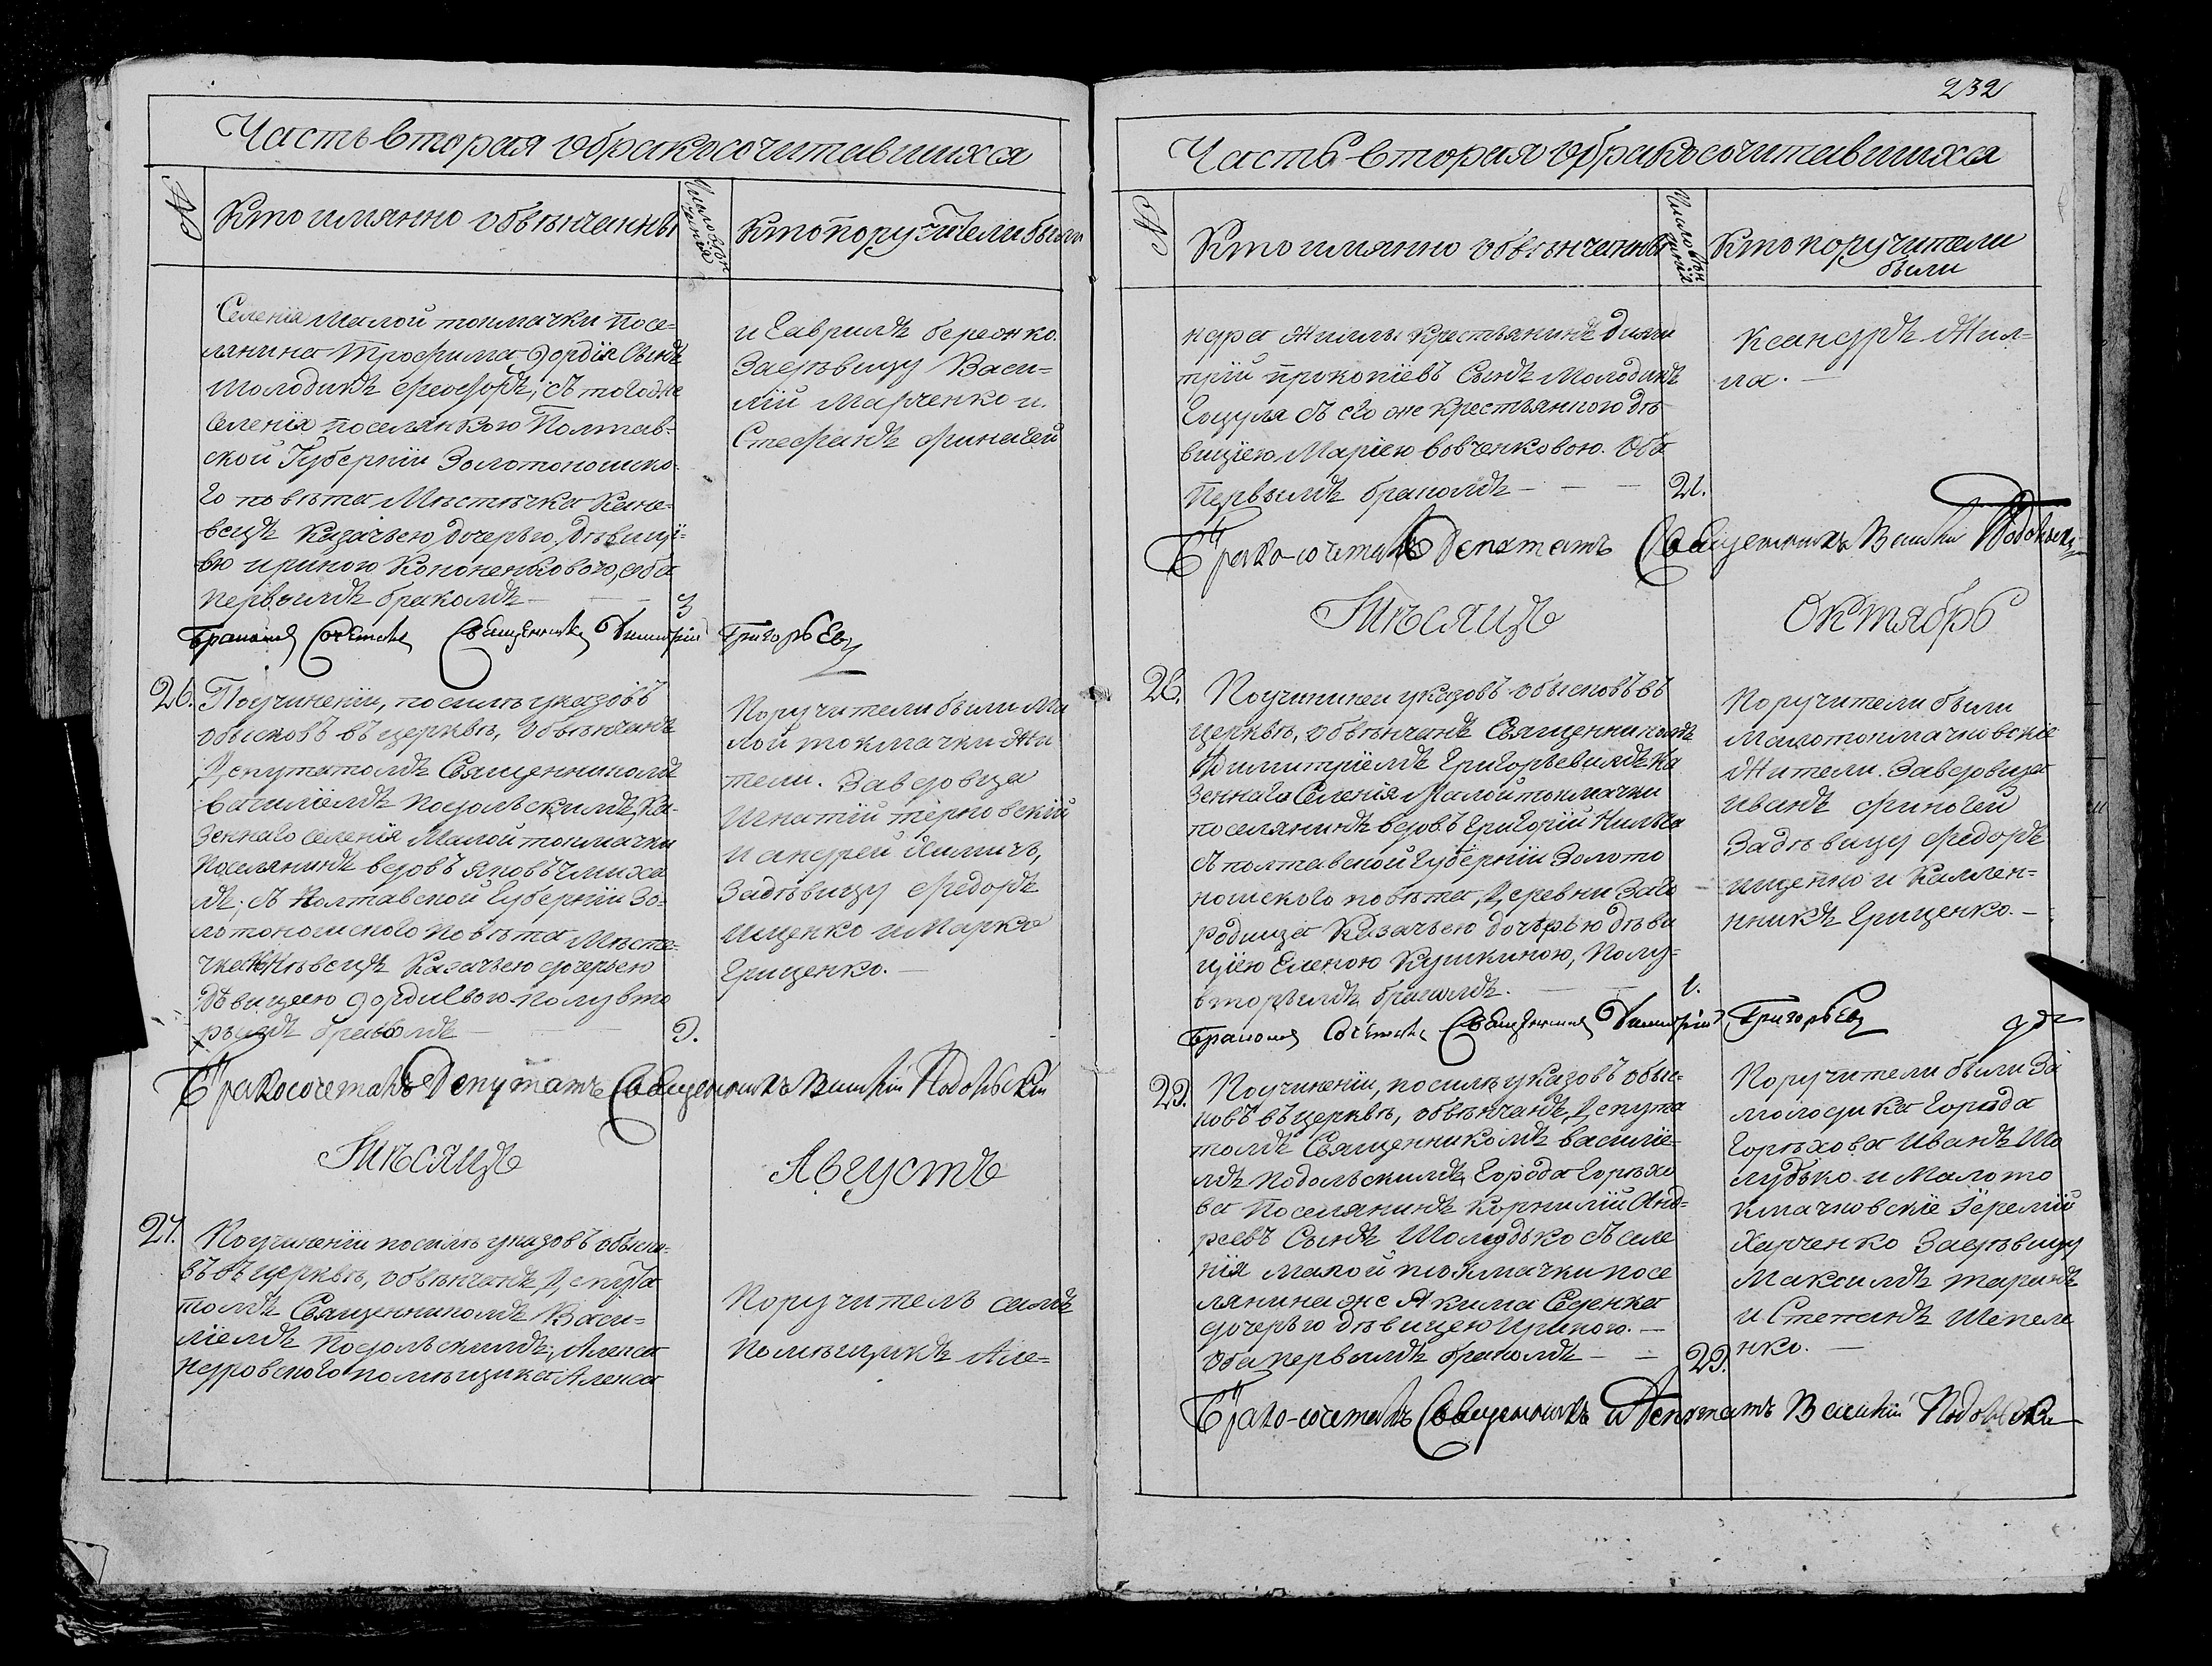 Часть вторая обракосочитавшихся
№
Кто имянно обвѣнчанны
Число вѣн
чания
Кто поручители были
Селенія Малой токмачки посе-
лянина Трофима Гордія Сынъ
Молодикъ Феодоръ, съ того же
селенія поселянкою Полтав-
ской Губерніи Золотоношко-
го повѣта Мѣстечка
Казачьею дочерью, дѣвиці-
ею Ириною Кононенковою, оба
первымъ бракомъ — 3
и Гаврилъ береонко.
Задѣвицу Васи-
лій Марченко и
Стефанъ Финагей
Бракомъ Сочеталъ Священникъ Димитрій Григорьевъ
26. Поучиненіи, посилѣ указовъ
обысковъ въ церквѣ, обвѣнчанъ
Депутатомъ Священникомъ
василіемъ Подольскимъ, Ка-
зеннаго селенія Малой токмачки
Поселянинъ вдовъ яковъ
съ Полтавской Губерніи Зо-
лотоношского повѣта Мѣсте-
чка Казачьею дочерью
Дѣвицею Гордиевою полувто
рымъ бракомъ — 9.
Поручители были Ма
лой токмачки Жи
тели. За вдовца
Игнатій терновскій
и андрей Химичъ,
Задѣвицу Федоръ
Ищенко и Марко
Грищенко. —
Бракосочеталъ Депутатъ Священникъ Василій Подольскій
Мѣсяцъ Августъ
27. Поучиненіи посилѣ указовъ обыско-
въ въ церквѣ, обвѣнчанъ Депута
томъ Священникомъ Васи-
ліемъ Подольскимъ, Алекса
ндровского помѣщика Алекса
Поручитель самъ
Помѣщикъ Але-
232
Часть вторая обракосочитавшихся
№
Кто имянно обвѣнчанны
Число вѣн
чания
Кто поручители
были
ндра Жилы. Крестьянинъ Дими
трій прокопіевъ Сынъ Молодикъ
Гоцуля съ его же крестьянкою дѣ
вицією Маріею вовченковою. Оба
Первымъ бракомъ — — — 21.
ксандръ Жил-
ла. —
Брако-сочеталъ Депутатъ Священникъ Василій Подольскій
Мѣсяцъ Октябрь
28. Поучинении указовъ обысковъ въ
церквѣ, обвѣнчанъ Священникомъ
Димитріемъ Григорьевимъ Ка
зеннаго Селенія Малой токмачки
поселянинъ вдовъ Григорій
съ полтавской Губерніи Золото
ношского повѣта, Деревни Заго
родища Казачьею дочерью дѣви
цією Еленою Кушкиною, Полу-
вторымъ бракомъ. — — 1.
Поручители были
Малотокмачковскіе
Жители. За вдовца
иванъ финогей
Задѣвицу Федоръ
ищенко и Каллен-
никъ Грищенко. —
Бракомъ Сочеталъ Священникъ Димитрій Григорьевъ
29. Поучиненіи, посилѣ указовъ обыс-
ковъ въ церквѣ, обвѣнчанъ, Депута
томъ Священникомъ василіе-
мъ Подольскимъ, Города Горѣхо
ва Поселянинъ Корнилій Анд-
реевъ Сынъ Шолудько съ селе
нія малой токмачки посе
лянина же Якима Седенка
дочерью дѣвицею Ириною. —
Оба первымъ бракомъ — — 29.
Поручители были За
молодика Города
Горѣхова Иванъ Шо
лудько и Малото
кмачковскіе Іеремій
Харченко Задѣвицу
Максимъ таранъ
и Степанъ Шепеле
нко. —
Брако-сочеталъ Священникъ и Депутатъ Василій Подольскій